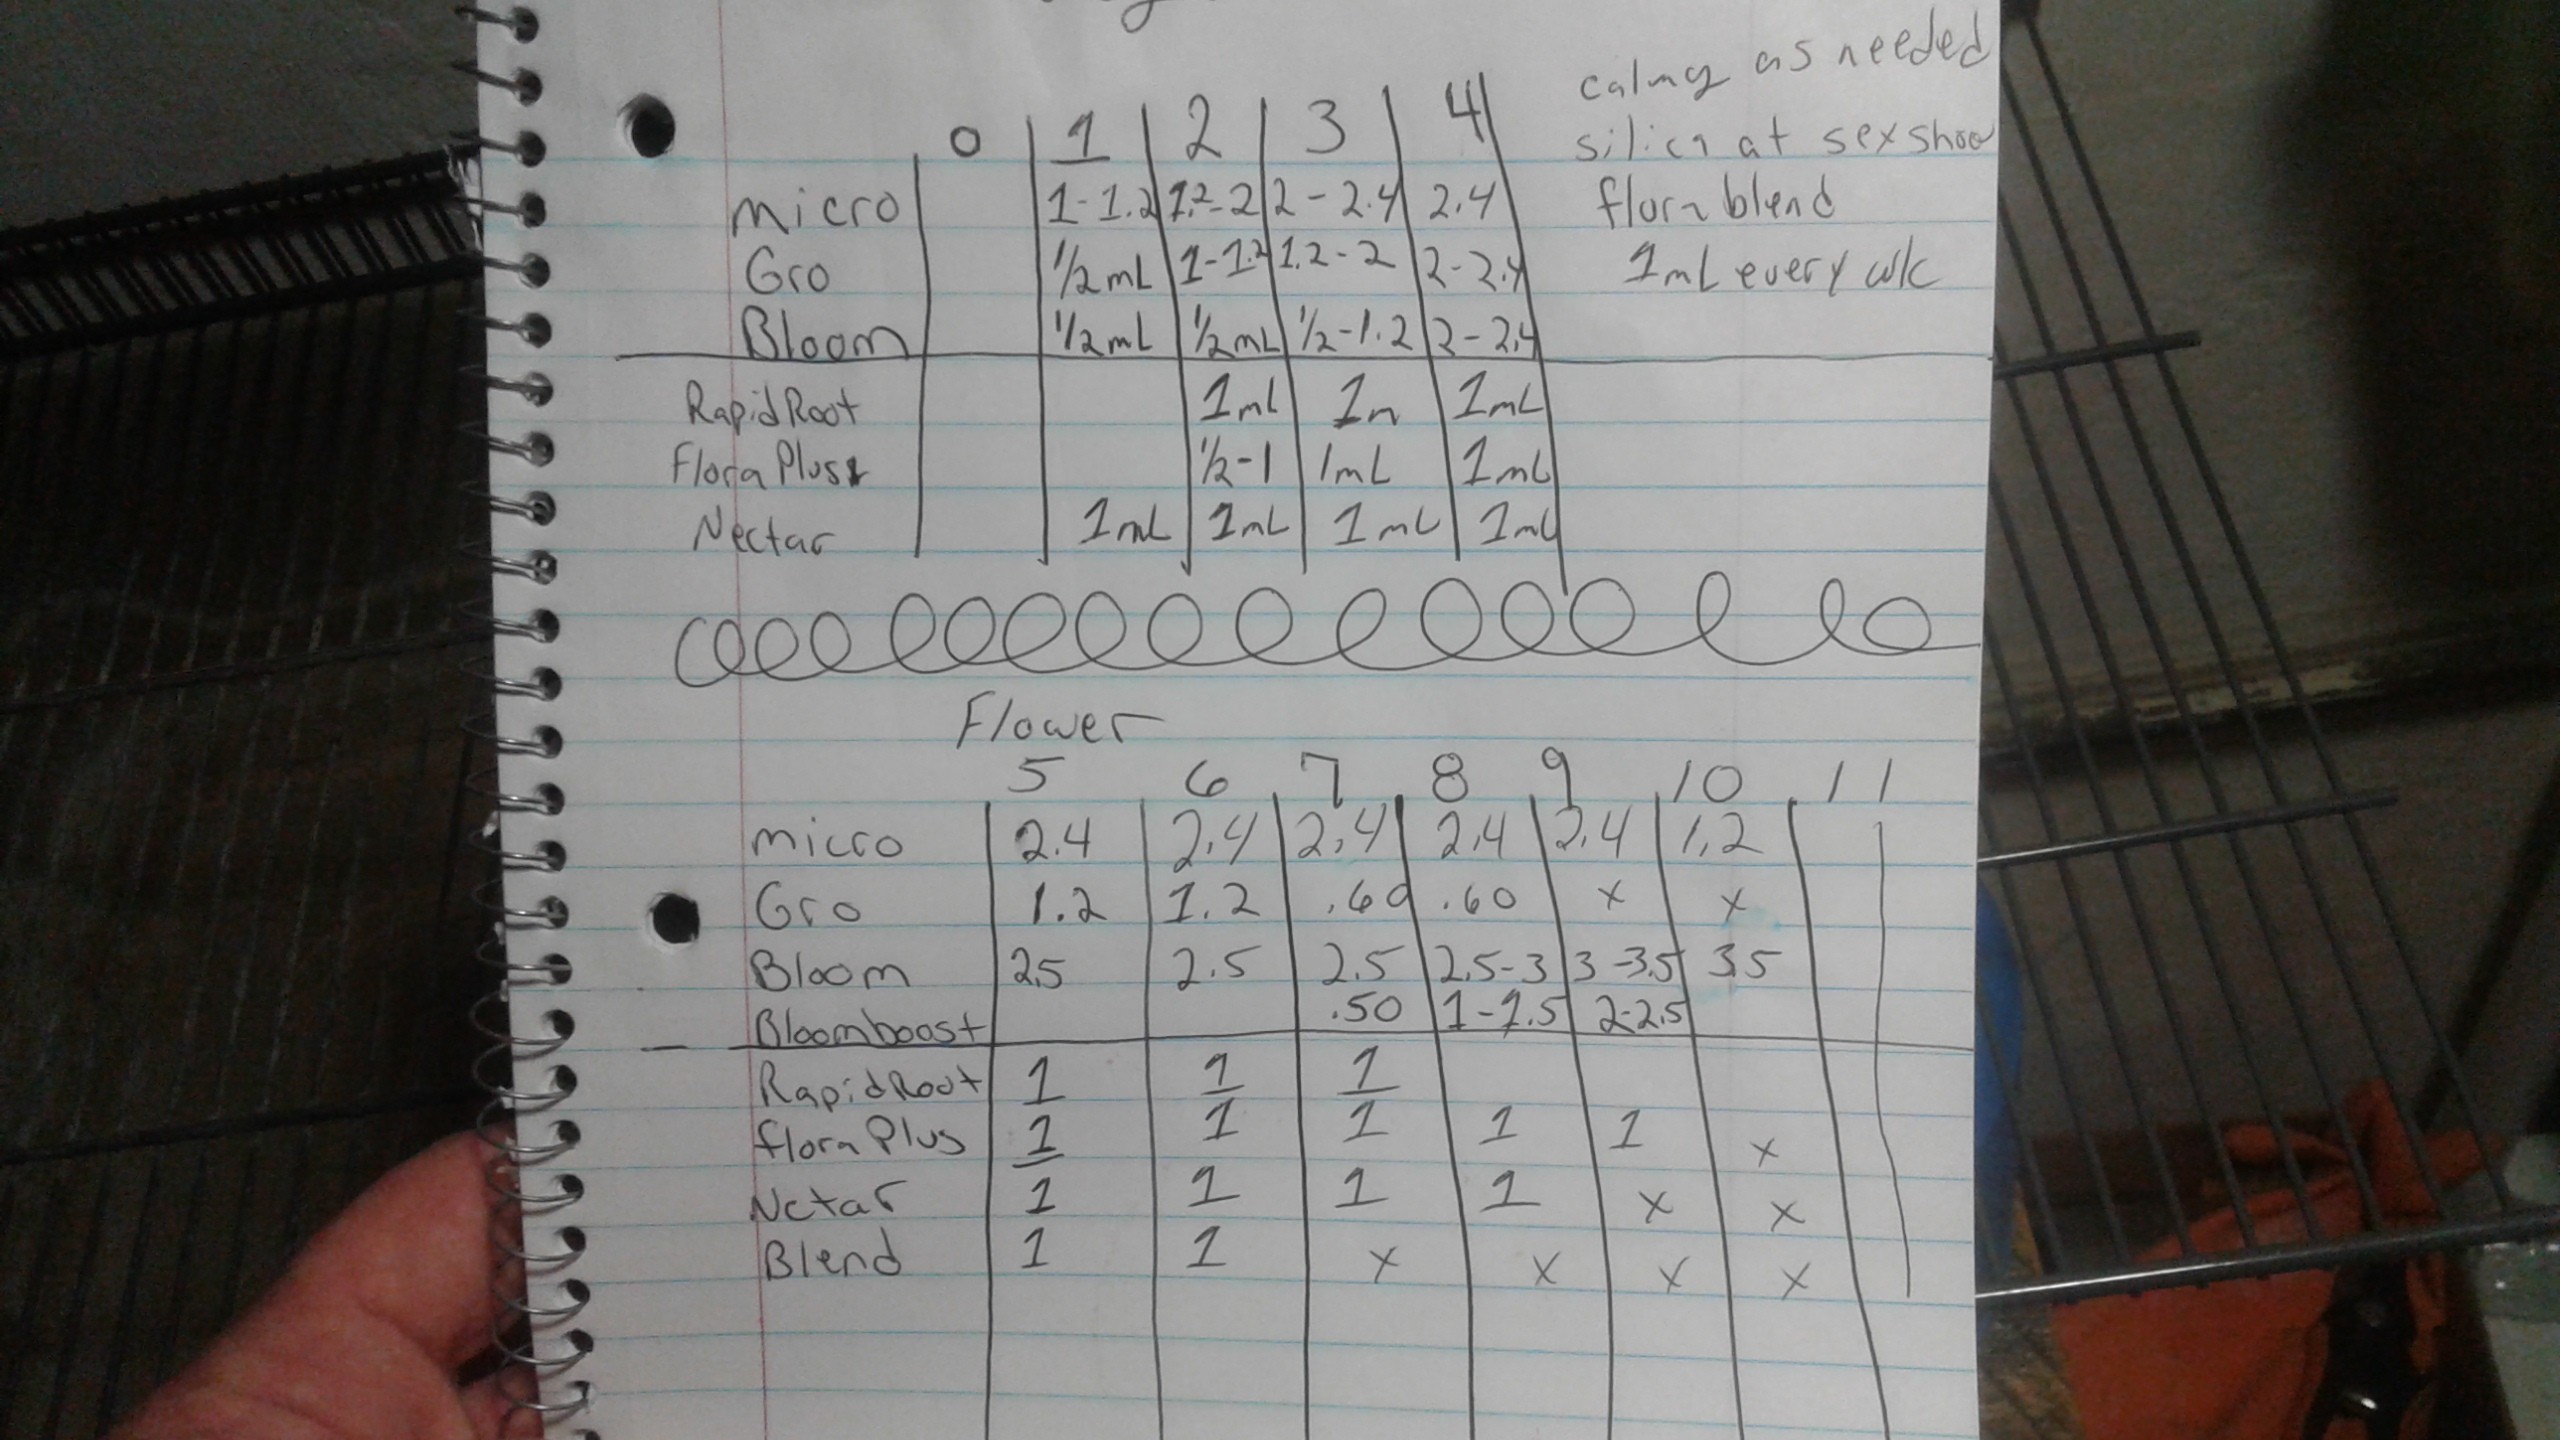 0 1 2 3 4
calmg as needed
silica at sex show
micro 1-1.2 1.2-2 2-2.4 2.4
flora blend
Gro 1/2 mL 1-1.2 1.2-2 2-2.4
1mL every wk
Bloom 1/2 mL 1/2 mL 1/2-1.2 2-2.4
Rapid Root 1mL 1m 1mL
Flora Plus 1/2-1 1mL 1mL
Nectar 1mL 1mL 1mL 1mL
Flower
5 6 7 8 9 10 11
micro 2.4 2.4 2.4 2.4 2.4 1.2
Gro 1.2 1.2 .60 .60 x x
Bloom 2.5 2.5 2.5 2.5-3 3-3.5 3.5
Bloomboost .50 1-1.5 2-2.5
Rapid Root 1 1 1
flora Plus 1 1 1 1 1 x
Nctar 1 1 1 1 x x
Blend 1 1 x x x x